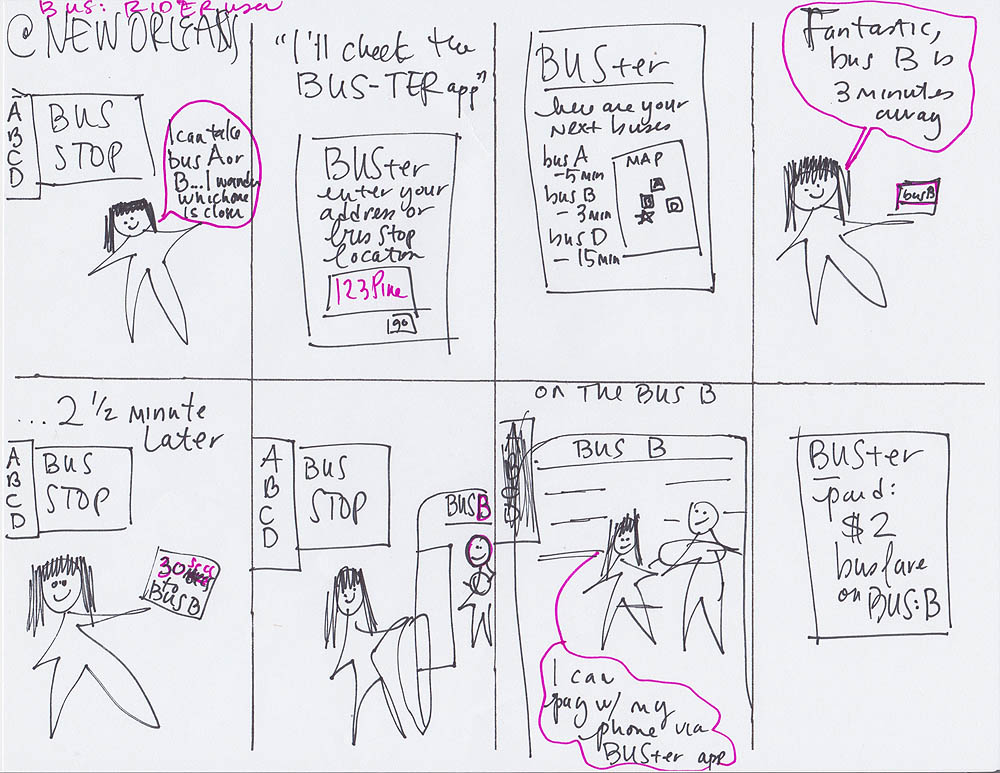 BUS: RIDER user
@NEW ORLEANS
A
B
C
D
BUS
STOP
I can take
bus A or
B... I wonder
which one
is closer
"I'll check the
BUS-TER app"
BUSter
enter your
address or
bus stop
location
123 Pine
go
BUSter
here are your
next buses
bus A
-5min
bus B
- 3min
bus D
- 15min
MAP
A
B
D
Fantastic,
bus B is
3 minutes
away
bus B
...2 1/2 minute
later
A
B
C
D
BUS
STOP
30 secs
to
BUS B
A
B
C
D
BUS
STOP
BUS B
ON THE BUS B
BUS B
I can
pay w/ my
phone via
BUSter app
BUSter
paid:
$2
bus fare
on BUS:B